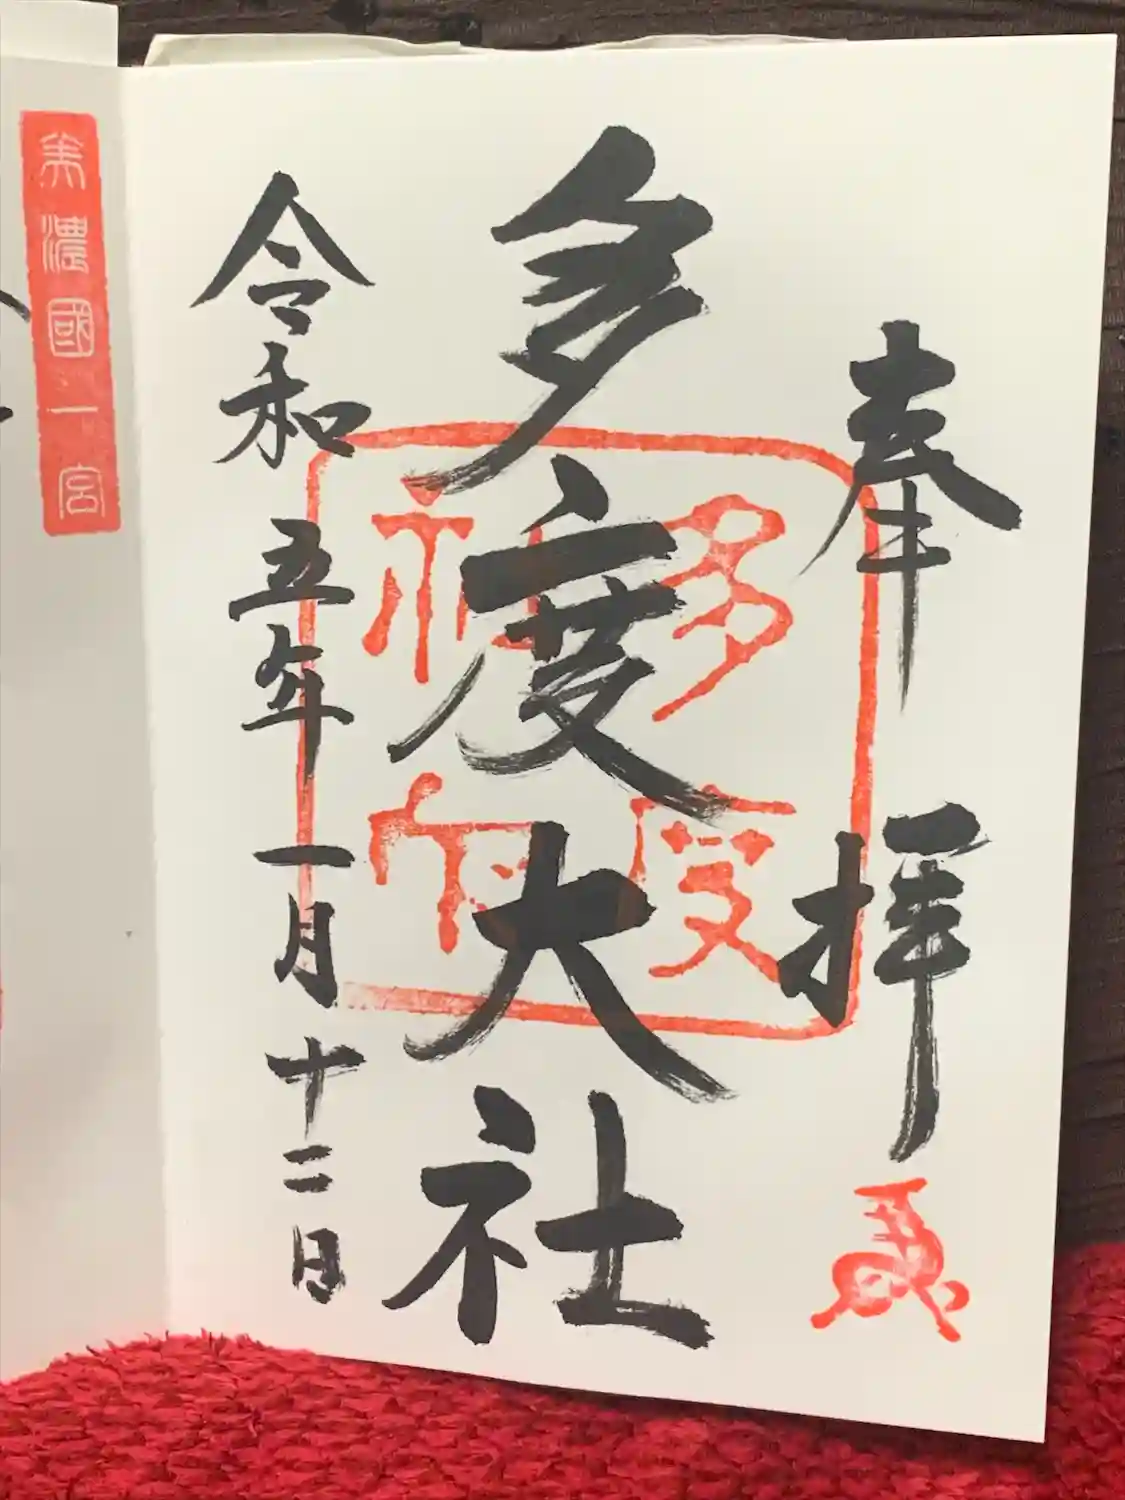 奉拝
多度大社
多度神社
令和五年一月十二日
美濃國一宮